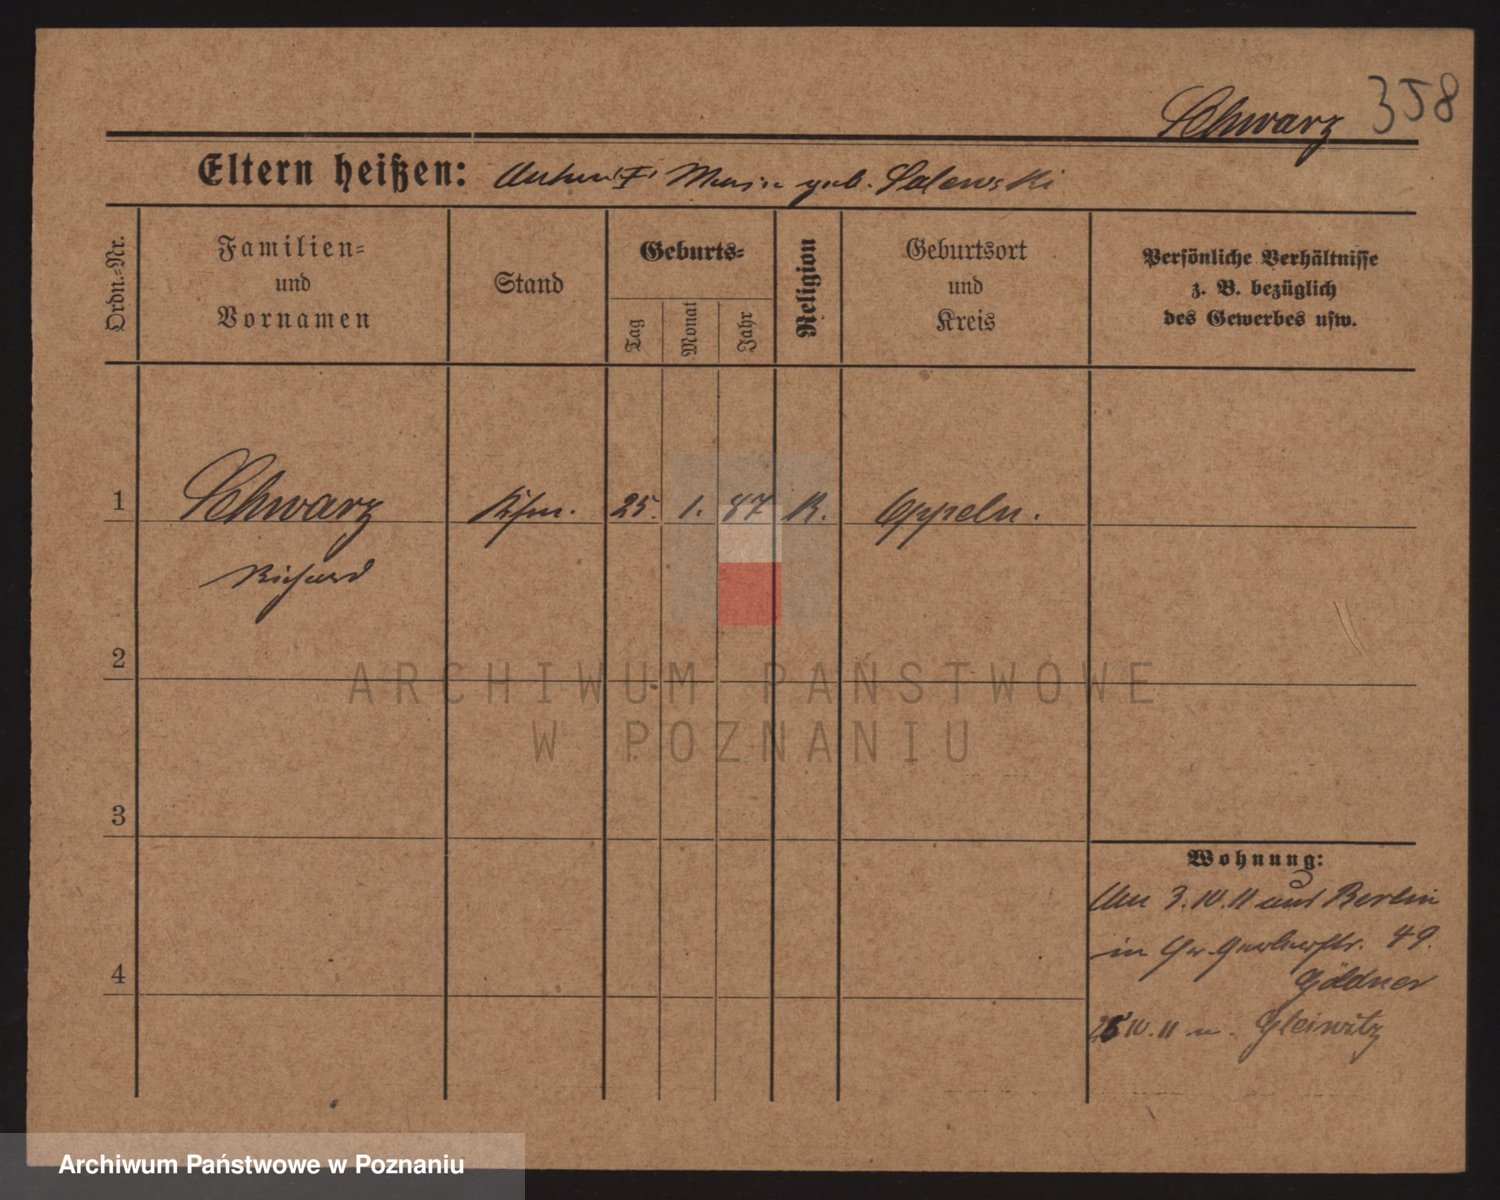 358
Schwarz
Eltern heißen: Anton u. Marie geb. Salewski
Ordn.-Nr.
Familien- und Vornamen
Stand
Geburts-
Tag
Monat
Jahr
Religion
Geburtsort und Kreis
Persönliche Verhältnisse z. B. bezüglich des Gewerbes usw.
1 Schwarz Kfm. 25. 1. 87 K. Oppeln.
Richard
2
ARCHIWUM PAŃSTWOWE
W POZNANIU
3
Wohnung:
Am 3.10.11 aus Berlin
in Gr. Gerberstr. 49.
4
Göldner
10.11 n. Gleiwitz
Archiwum Państwowe w Poznaniu